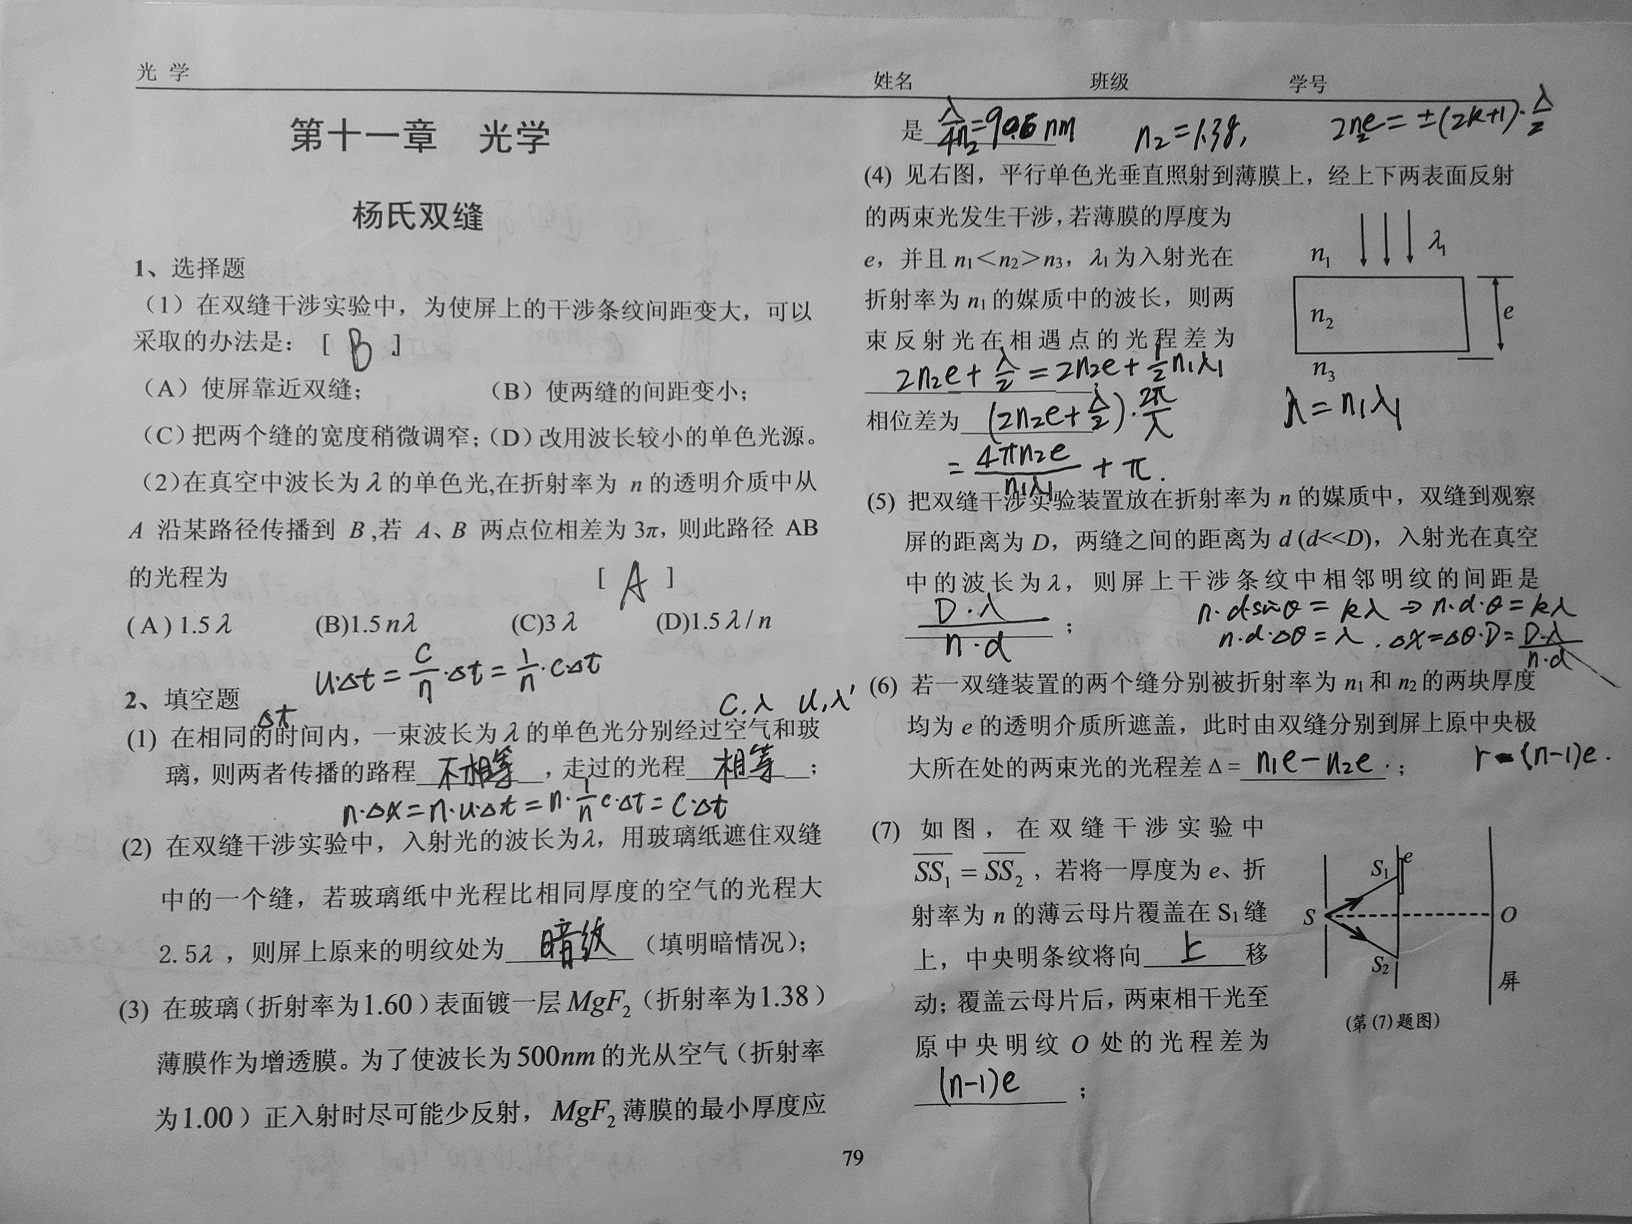 光 学
姓名 班级 学号
第十一章 光学
杨氏双缝
1、选择题
（1）在双缝干涉实验中，为使屏上的干涉条纹间距变大，可以
采取的办法是：[ B ]
（A）使屏靠近双缝； （B）使两缝的间距变小；
（C）把两个缝的宽度稍微调窄；（D）改用波长较小的单色光源。
（2）在真空中波长为 λ 的单色光,在折射率为 n 的透明介质中从
A 沿某路径传播到 B ,若 A、B 两点位相差为 3π，则此路径 AB
的光程为 [ A ]
(A) 1.5 λ (B)1.5 nλ (C)3 λ (D)1.5 λ / n
u·Δt = c/n ·Δt = 1/n · cΔt
2、填空题
Δt c.λ u,λ'
(1) 在相同的时间内，一束波长为 λ 的单色光分别经过空气和玻
璃，则两者传播的路程 不相等 ，走过的光程 相等 ；
n·Δx = n·u·Δt = n· 1/n c·Δt = c·Δt
(2) 在双缝干涉实验中，入射光的波长为λ，用玻璃纸遮住双缝
中的一个缝，若玻璃纸中光程比相同厚度的空气的光程大
2.5λ ，则屏上原来的明纹处为 暗纹 （填明暗情况）；
(3) 在玻璃（折射率为1.60）表面镀一层 MgF₂（折射率为1.38）
薄膜作为增透膜。为了使波长为500nm 的光从空气（折射率
为1.00）正入射时尽可能少反射，MgF₂ 薄膜的最小厚度应
是 λ/4n₂ = 90.6 nm n₂ = 1.38, 2n₂e = ±(2k+1)· λ/2
(4) 见右图，平行单色光垂直照射到薄膜上，经上下两表面反射
的两束光发生干涉，若薄膜的厚度为
e，并且 n₁＜n₂＞n₃，λ₁ 为入射光在
折射率为 n₁ 的媒质中的波长，则两
束反射光在相遇点的光程差为
2n₂e + λ/2 = 2n₂e + 1/2 n₁λ₁
相位差为 (2n₂e + λ/2) · 2π/λ
= 4πn₂e/n₁λ₁ + π.
n₁ λ₁
n₂ e
n₃
λ = n₁λ₁
(5) 把双缝干涉实验装置放在折射率为 n 的媒质中，双缝到观察
屏的距离为 D，两缝之间的距离为 d (d<<D)，入射光在真空
中的波长为 λ，则屏上干涉条纹中相邻明纹的间距是
D·λ/n·d ； n·d·sinθ = kλ → n·d·θ = kλ
n·d·Δθ = λ . Δx = Δθ·D = D·λ/n·d
(6) 若一双缝装置的两个缝分别被折射率为 n₁ 和 n₂ 的两块厚度
均为 e 的透明介质所遮盖，此时由双缝分别到屏上原中央极
大所在处的两束光的光程差 Δ = n₁e − n₂e ； r = (n−1)e .
(7) 如图，在双缝干涉实验中
SS₁ = SS₂ ，若将一厚度为 e、折
射率为 n 的薄云母片覆盖在 S₁ 缝
上，中央明条纹将向 上 移
动；覆盖云母片后，两束相干光至
原中央明纹 O 处的光程差为
(n−1)e ；
S₁ e
S O
S₂
屏
(第(7)题图)
79